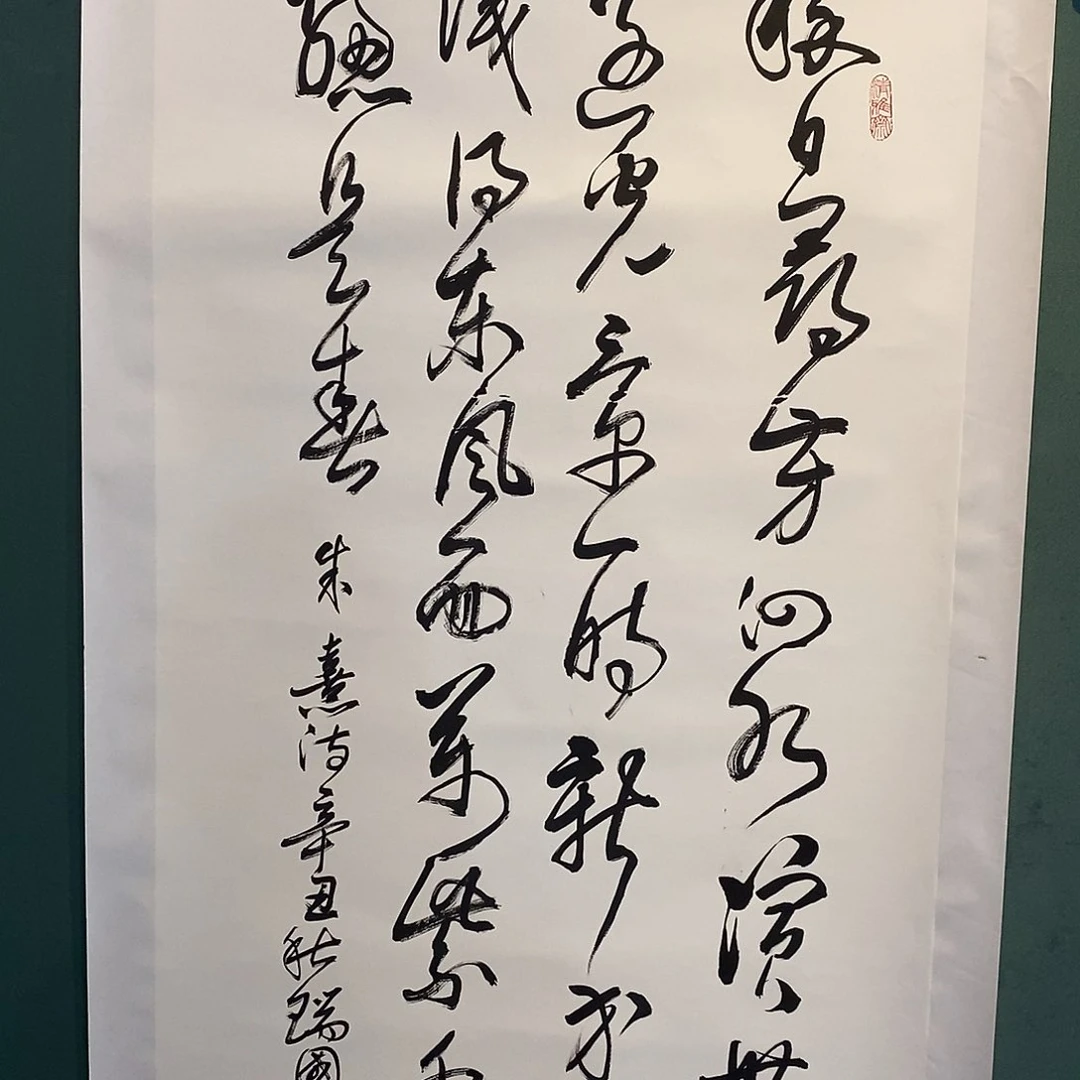 勝日尋芳泗水濱無
邊光景一時新等
識得東風面萬紫千
總是春
朱熹詩辛丑秋瑞國